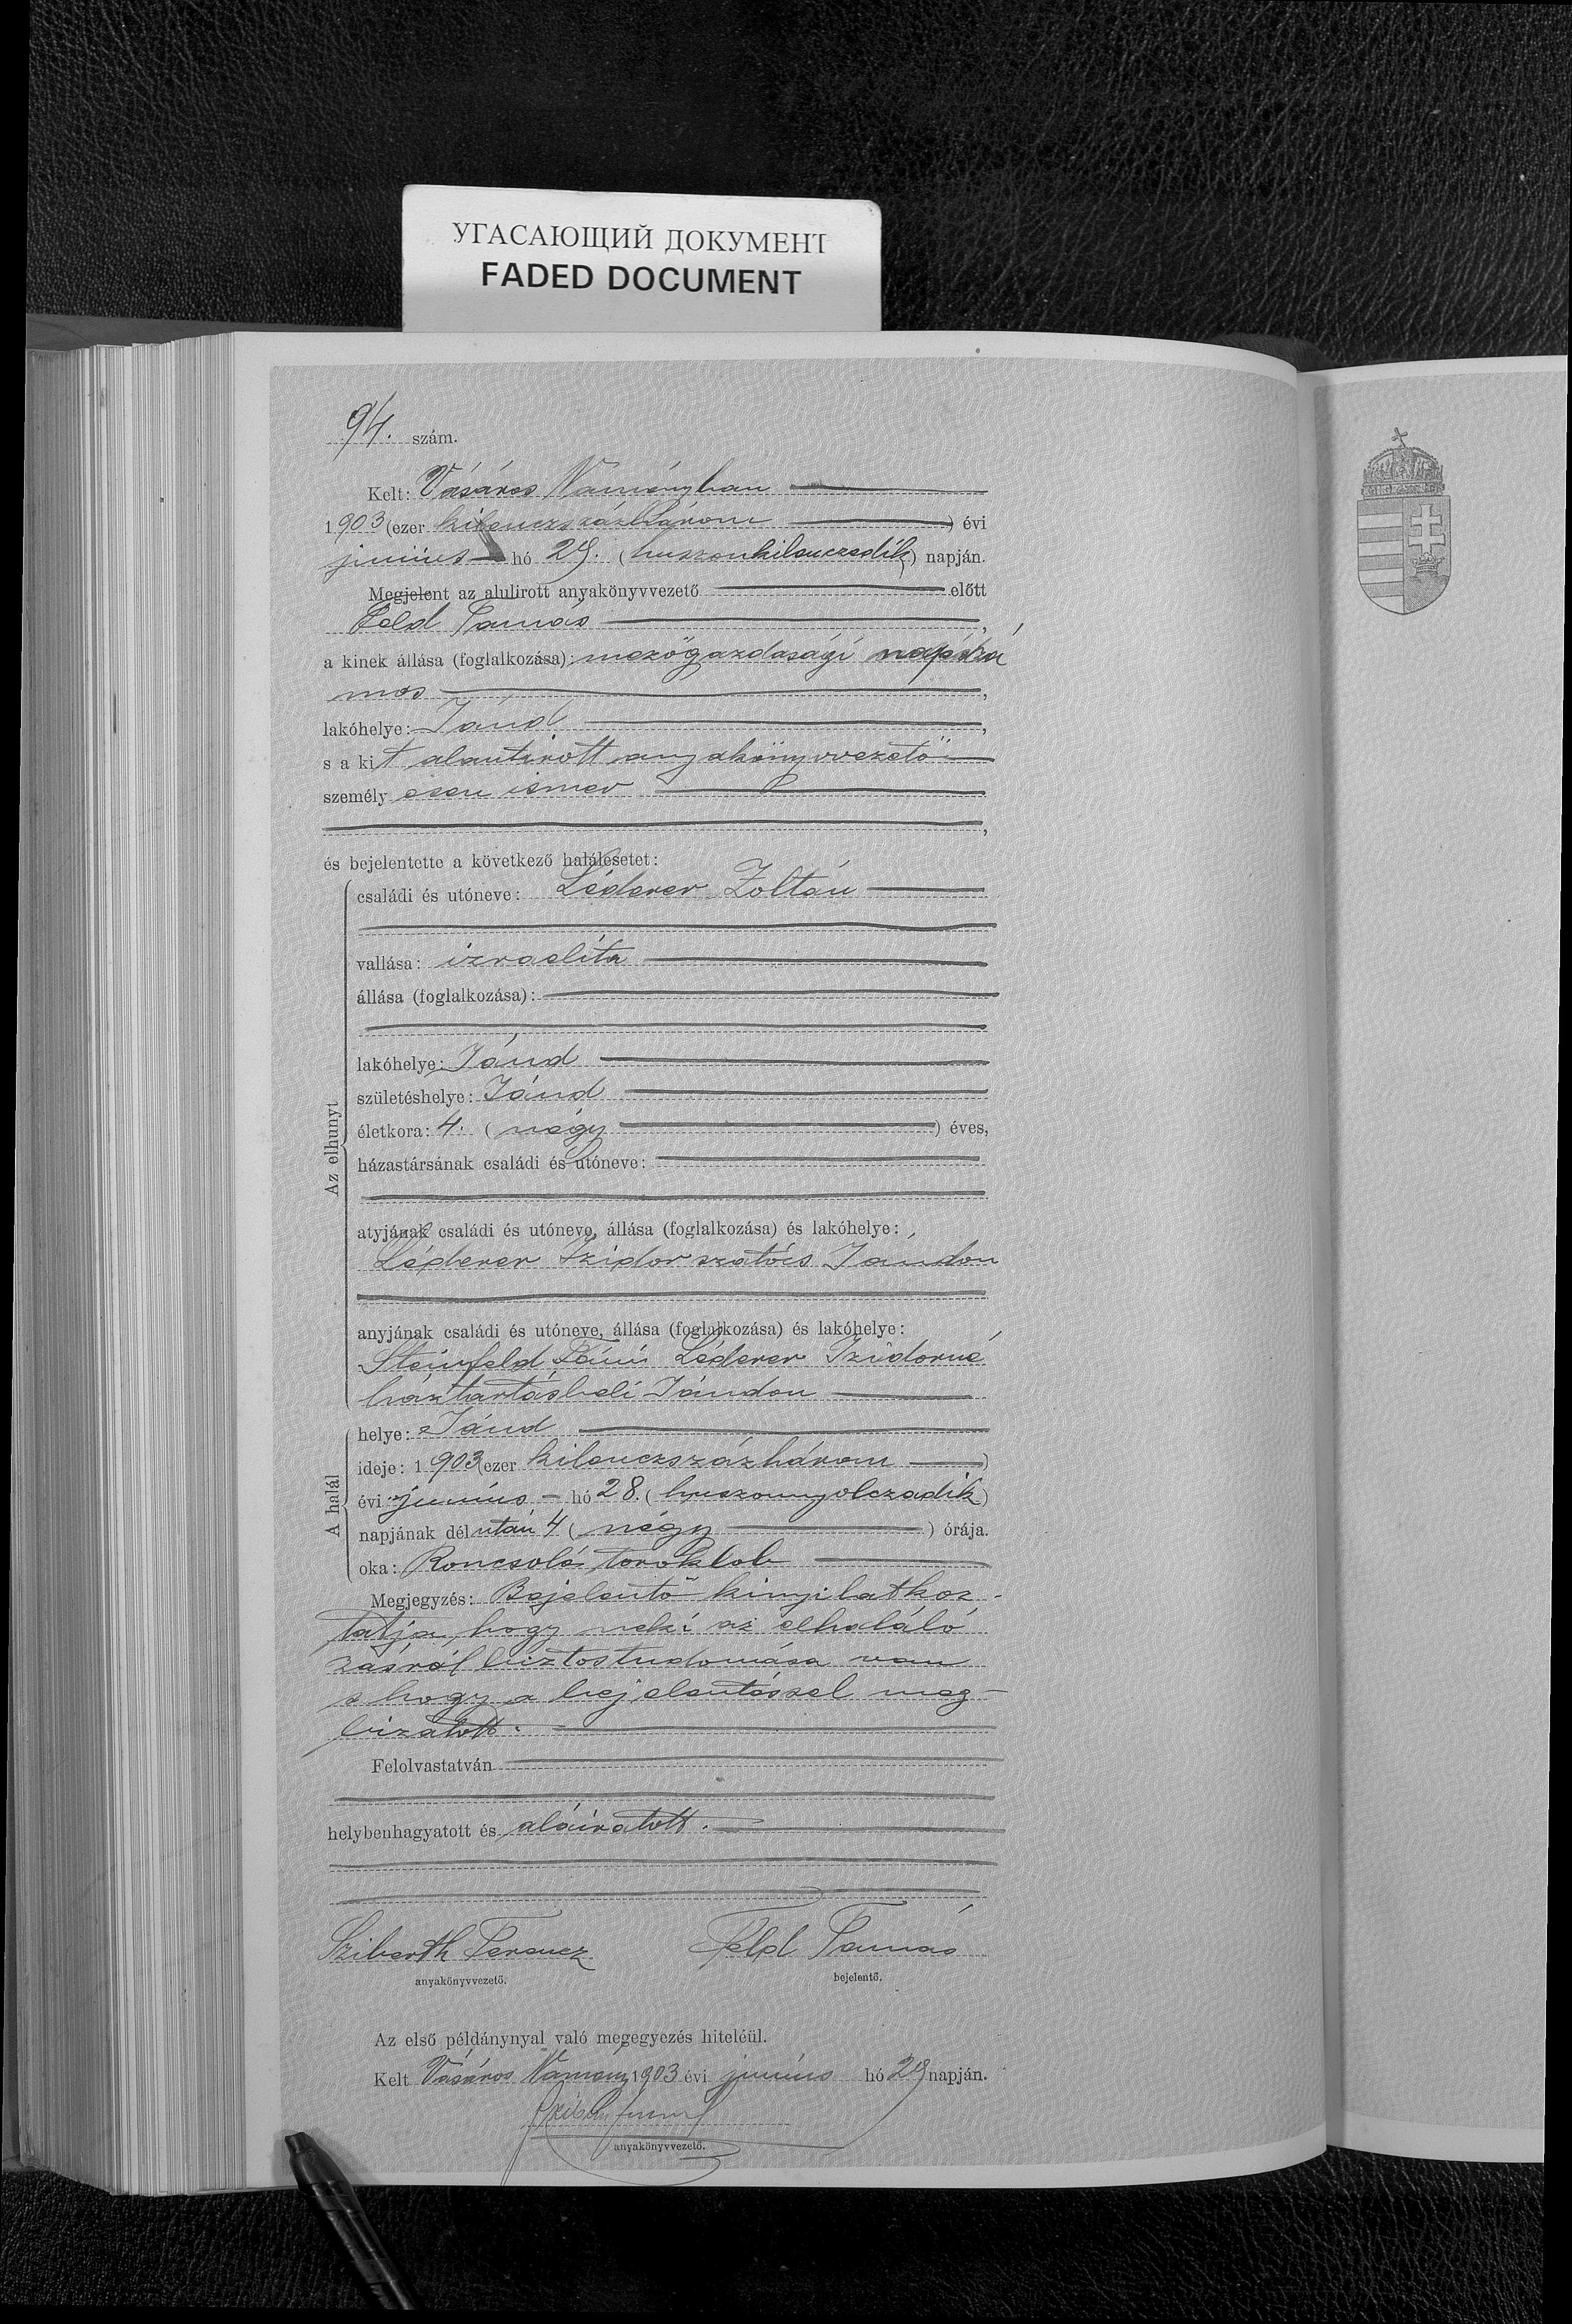 УГАСАЮЩИЙ ДОКУМЕНТ
FADED DOCUMENT
94. szám.
Kelt: Vásáros Naményban
1903 (ezer kilenczszázhárom ) évi
junius hó 29. ( huszonkilenczedik ) napján.
Megjelent az alulirott anyakönyvvezető előtt
Feld Tamás ,
a kinek állása (foglalkozása): mezőgazdasági napszá
mos ,
lakóhelye: Jánd ,
s a kit alantirott anyakönyvvezető
személy esen ismer
,
és bejelentette a következő halálesetet:
Az elhunyt
családi és utóneve: Léderer Zoltán
vallása: izraelita
állása (foglalkozása):
lakóhelye: Jánd
születéshelye: Jánd
életkora: 4. ( négy ) éves,
házastársának családi és utóneve:
atyjának családi és utóneve, állása (foglalkozása) és lakóhelye:
Léderer Izidor szatócs Jándon
anyjának családi és utóneve, állása (foglalkozása) és lakóhelye:
Steinfeld Fáni Léderer Izidorné
háztartásbeli Jándon
A halál
helye: Jánd
ideje: 1903 (ezer kilenczszázhárom )
évi junius – hó 28. ( huszonnyolczadik )
napjának dél után 4 ( négy ) órája.
oka: Roncsoló toroklob
Megjegyzés: Bejelentő kinyilatkoz-
tatja, hogy neki az elhaláló
zásról biztos tudomása van
s hogy a bejelentéssel meg-
bizatott.
Felolvastatván
helybenhagyatott és aláiratott.
Sziberth Ferencz Feld Tamás
anyakönyvvezető. bejelentő.
Az első példánynyal való megegyezés hiteléül.
Kelt Vásáros Namény 1903 évi junius hó 29 napján.
anyakönyvvezető.